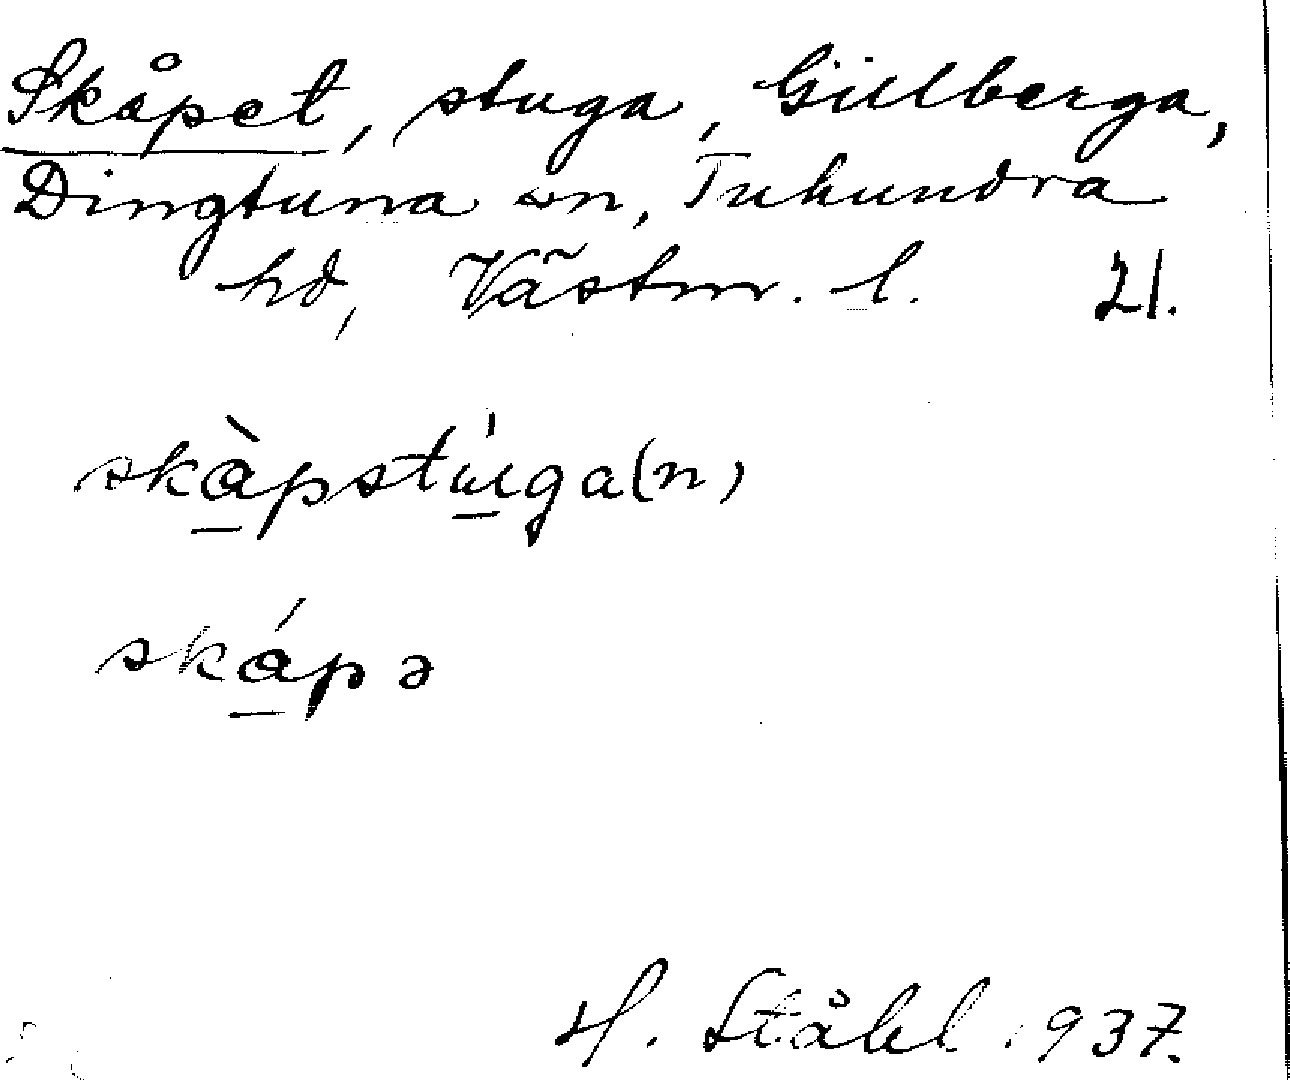 Skåpet, stuga, Gillberga,
Dingtuna sn, Tuhundra
hd, Västm. l. 21.
skàpstúga(n)
skápə
H. Ståhl 1937.